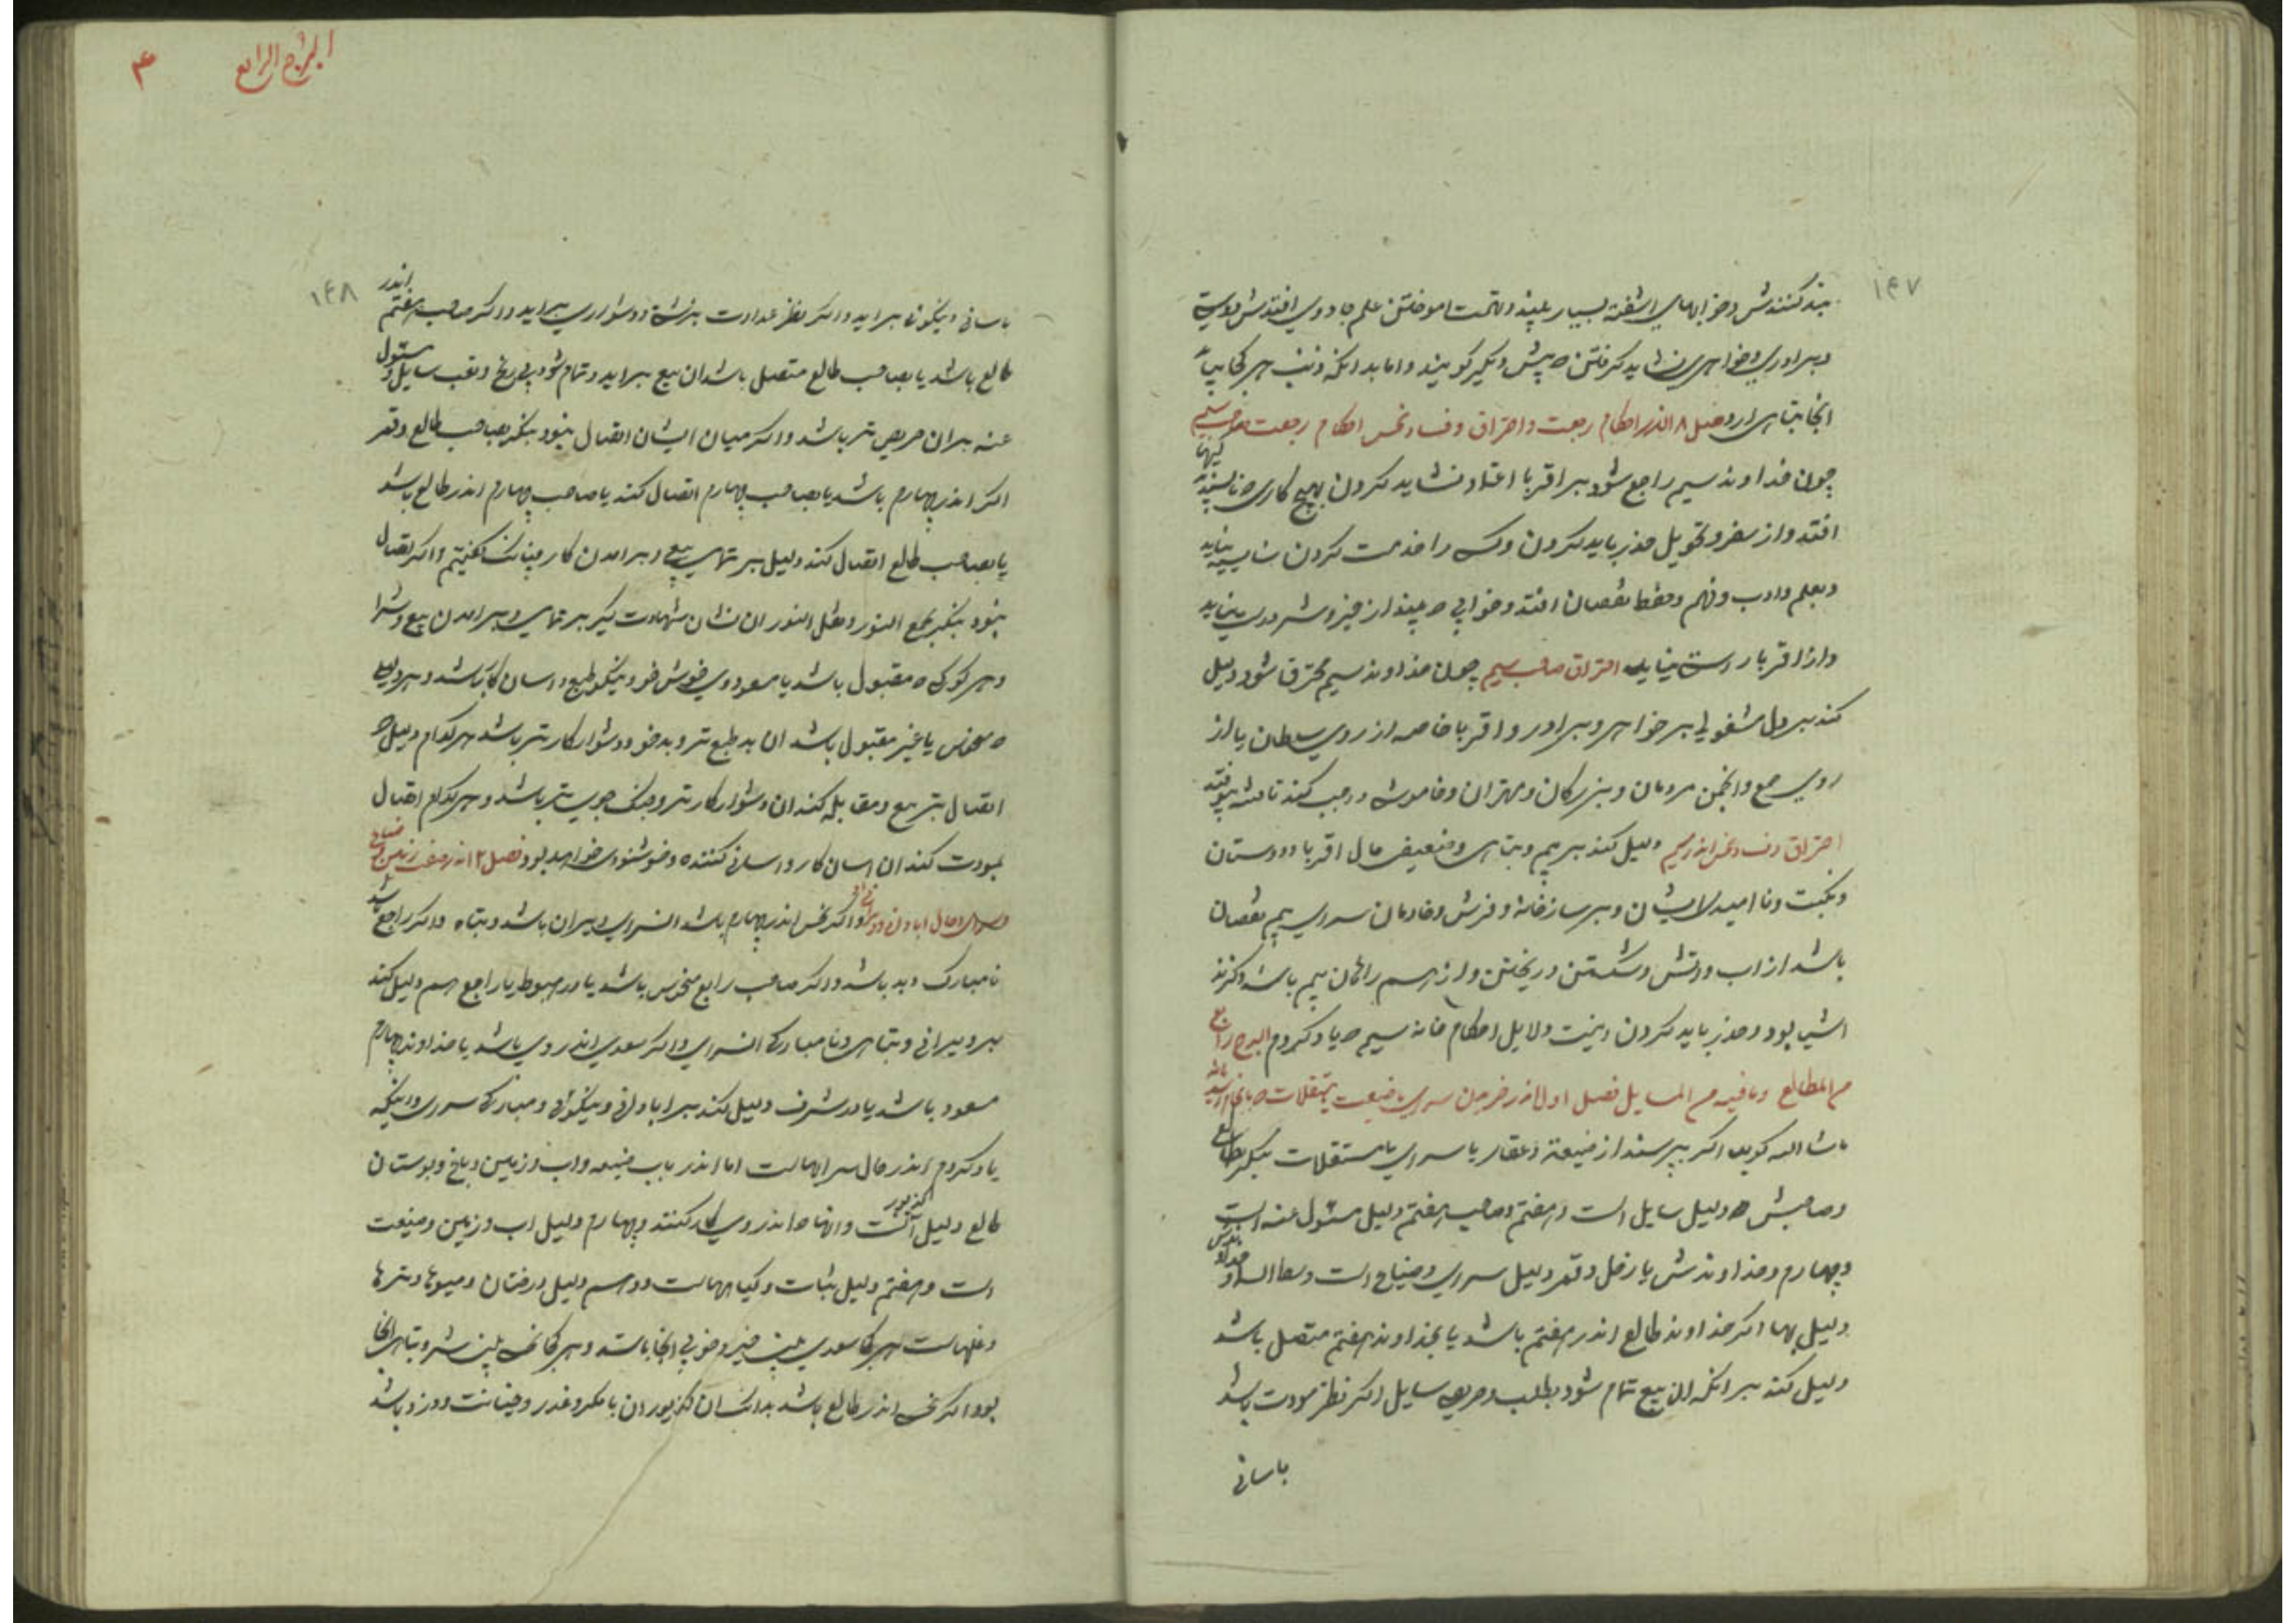 ۱۴۷
بند کنندش و خوابهای اشفته بسیار بیند و تهمت اموختن علم جادوی افتدش و دوستی
و برادری و خواهری نشاید گرفتن که پیش دیگر کویند و اما بدانکه ذنب هر کجا بیاید
انجا تباهی ارد فصل ۸ اندر احکام رجعت و احتراق و فساد نحس احکام رجعت صاحب سیم
چون خداوند سیم راجع شود بر اقربا اعتماد نشاید کردن بهیچ کاری که ناپسندیدگیها
افتد و از سفر و تحویل حذر باید کردن و کس را خدمت کردن شایسته نیاید
و بعلم و ادب و فهم و حفظ نقصان افتد و خوابی که بیند از خیر و شر درست نیاید
و از اقربا راست نیاید احتراق صاحب سیم چون خداوند سیم محترق شود دلیل
کند بر دل مشغولی بر خواهر و برادر و اقربا خاصه از روی سلطان یا از
روی جمع و انجمن مردمان و بزرکان و مهتران و خاموشی واجب کند تا فتنه نیوفتد
احتراق و فساد نحس اندر سیم دلیل کند بر بیم و تباهی و ضعیف حال اقربا و دوستان
و نکبت و نا امیدی ایشان و بر ساز خانه و فرش و خادمان سرای بیم نقصان
باشد از اب و اتش و شکستن و ریختن و از هم رانان بیم باشد و کزند
اشیب بود و حذر باید کردن اینست دلایل احکام خانه سیم که یاد کردم البرج رابع
من المطالع و ما فیه من المسایل فصل اول اندر خریدن سرای یا ضیعت یا مستقلات که بانجام رسد یا نه
ما شا الله کوید اکر بپرسند از ضیعة و عقار یا سرای یا مستقلات بنکر بطالع
و صاحبش که دلیل سایل است و هفتم و صاحب هفتم دلیل مسئول عنه است
و چهارم و خداوندش با زحل و قمر دلیل سرای و ضیاع است و وسط السما و خداوندش
دلیل بها اکر خداوند طالع اندر هفتم باشد یا بخداوند هفتم متصل باشد
دلیل کند بر انکه ان بیع تمام شود بطلب و حریصی سایل اکر نظر مودت باشد
باسانی
البرج الرابع
۴
۱۴۸
باسانی و نیکوی براید و اکر نظر عداوت بزشتی و دشواری براید و اکر صاحب هفتم اندر
طالع باشد یا بصاحب طالع متصل باشد ان بیع براید و تمام شود بی رنج و تعب سایل و مسئول
عنه بران حریص تر باشد و اکر میان ایشان اتصال نبود بنکر بصاحب طالع و قمر
اکر اندر چهارم باشد یا بصاحب چهارم اتصال کند یا صاحب چهارم اندر طالع باشد
یا بصاحب طالع اتصال کند دلیل بر تمامی بیع و برامدن کار چنانک کفتیم و اکر اتصال
نبود بنکر بجمع النور و نقل النور ان نشان شهادت کیر بر تمامی و برامدن بیع و شرا
و هر کوکبی که مقبول باشد یا مسعود وی خوش خو و نیکو طبع و اسان کار باشد و هر دلیلی
که منحوس یا غیر مقبول باشد ان بد طبع تر و بد خو و دشوار کار تر باشد هر کدام دلیل که
اتصال بتربیع و مقابله کند ان دشوار کار تر و جنک جوی تر باشد و هر کدام اتصال
بمودت کند ان اسان کار و اسانی کننده و خوشنودی خواهد بود فصل ۲ اندر صفت زمین و ضیاع
و سرای و حال ابادانی و ویرانی او اکر نحس اندر چهارم باشد ان سرای ویران باشد و تباه و اکر راجع باشد
نامبارک و بد باشد و اکر صاحب رابع منحوس باشد یا در هبوط یا راجع هم دلیل کند
بر ویرانی و تباهی و نامبارکی ان سرای و اکر سعدی اندر وی باشد یا خداوند چهارم
مسعود باشد یا در شرف دلیل کند بر ابادانی و نیکوئی و مبارکی سرای و اینکه
یاد کردم اندر حال سرایهاست اما اندر باب ضیعه و اب و زمین و باغ و بوستان
طالع دلیل اکنست و انها که اندر وی کار کنند و چهارم دلیل اب و زمین و ضیعت
است و هفتم دلیل نبات و کیاههاست و دهم دلیل درختان و میوها و ترها
و غلهاست هر کجا سعدی بینی خیر و خوبی انجا باشد و هر کجا نحسی بینی شر و تباهی انجا
بود اکر نحسی اندر طالع باشد بدانک ان برزیکران با مکر و غدر و خیانت و دزد باشد